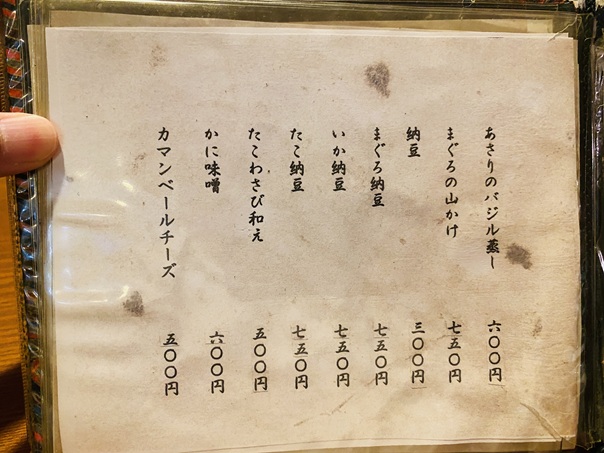 あさりのバジル蒸し 六〇〇円
まぐろの山かけ 七五〇円
納豆 三〇〇円
まぐろ納豆 七五〇円
いか納豆 七五〇円
たこ納豆 七五〇円
たこわさび和え 五〇〇円
かに味噌 六〇〇円
カマンベールチーズ 五〇〇円